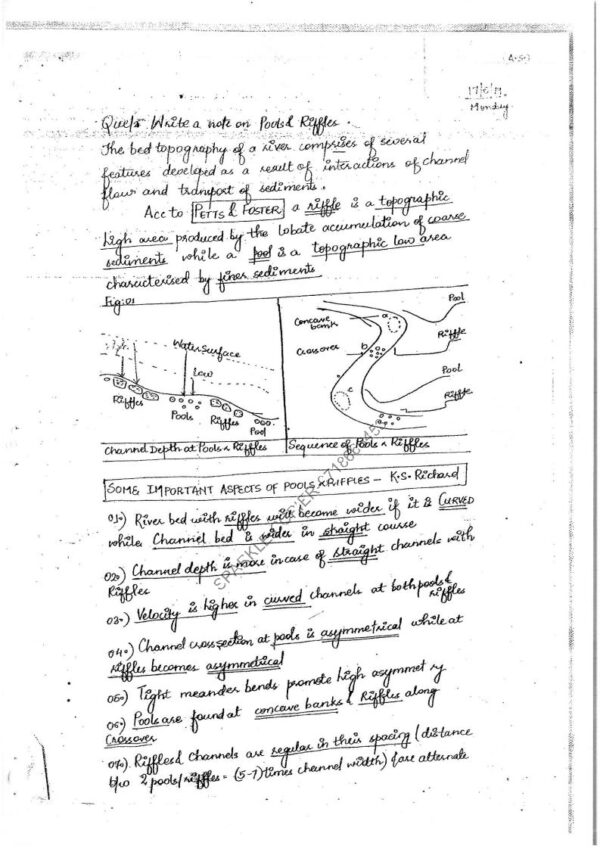 17/6/19
Monday
Ques:- Write a note on Pools & Riffles.
The bed topography of a river comprises of several
features developed as a result of interactions of channel
flow and transport of sediments.
Acc to PETTS & FOSTER a riffle is a topographic
high area produced by the lobate accumulation of coarse
sediments while a pool is a topographic low area
characterised by finer sediments
Fig:01
Water Surface
Low
Riffles
Pools
Riffles
Pool
Channel Depth at Pools & Riffles
Concave bank
Crossover
a
b
c
Pool
Riffle
Pool
Riffle
Sequence of Pools & Riffles
SOME IMPORTANT ASPECTS OF POOLS & RIFFLES - K.S. Richard
01.) River bed with riffles will become wider if it is CURVED
while Channel bed is wider in straight course
02.) Channel depth is more in case of straight channels with
Riffles
03.) Velocity is higher in curved channels at both pools &
riffles
04.) Channel cross section at pools is asymmetrical while at
riffles becomes asymmetrical
05.) Tight meander bends promote high asymmetry
06.) Pools are found at concave banks & Riffles along
Crossover
07.) Riffles & Channels are regular in their spacing (distance
b/w 2 pools/riffles = (5-7) times channel width) & are alternate